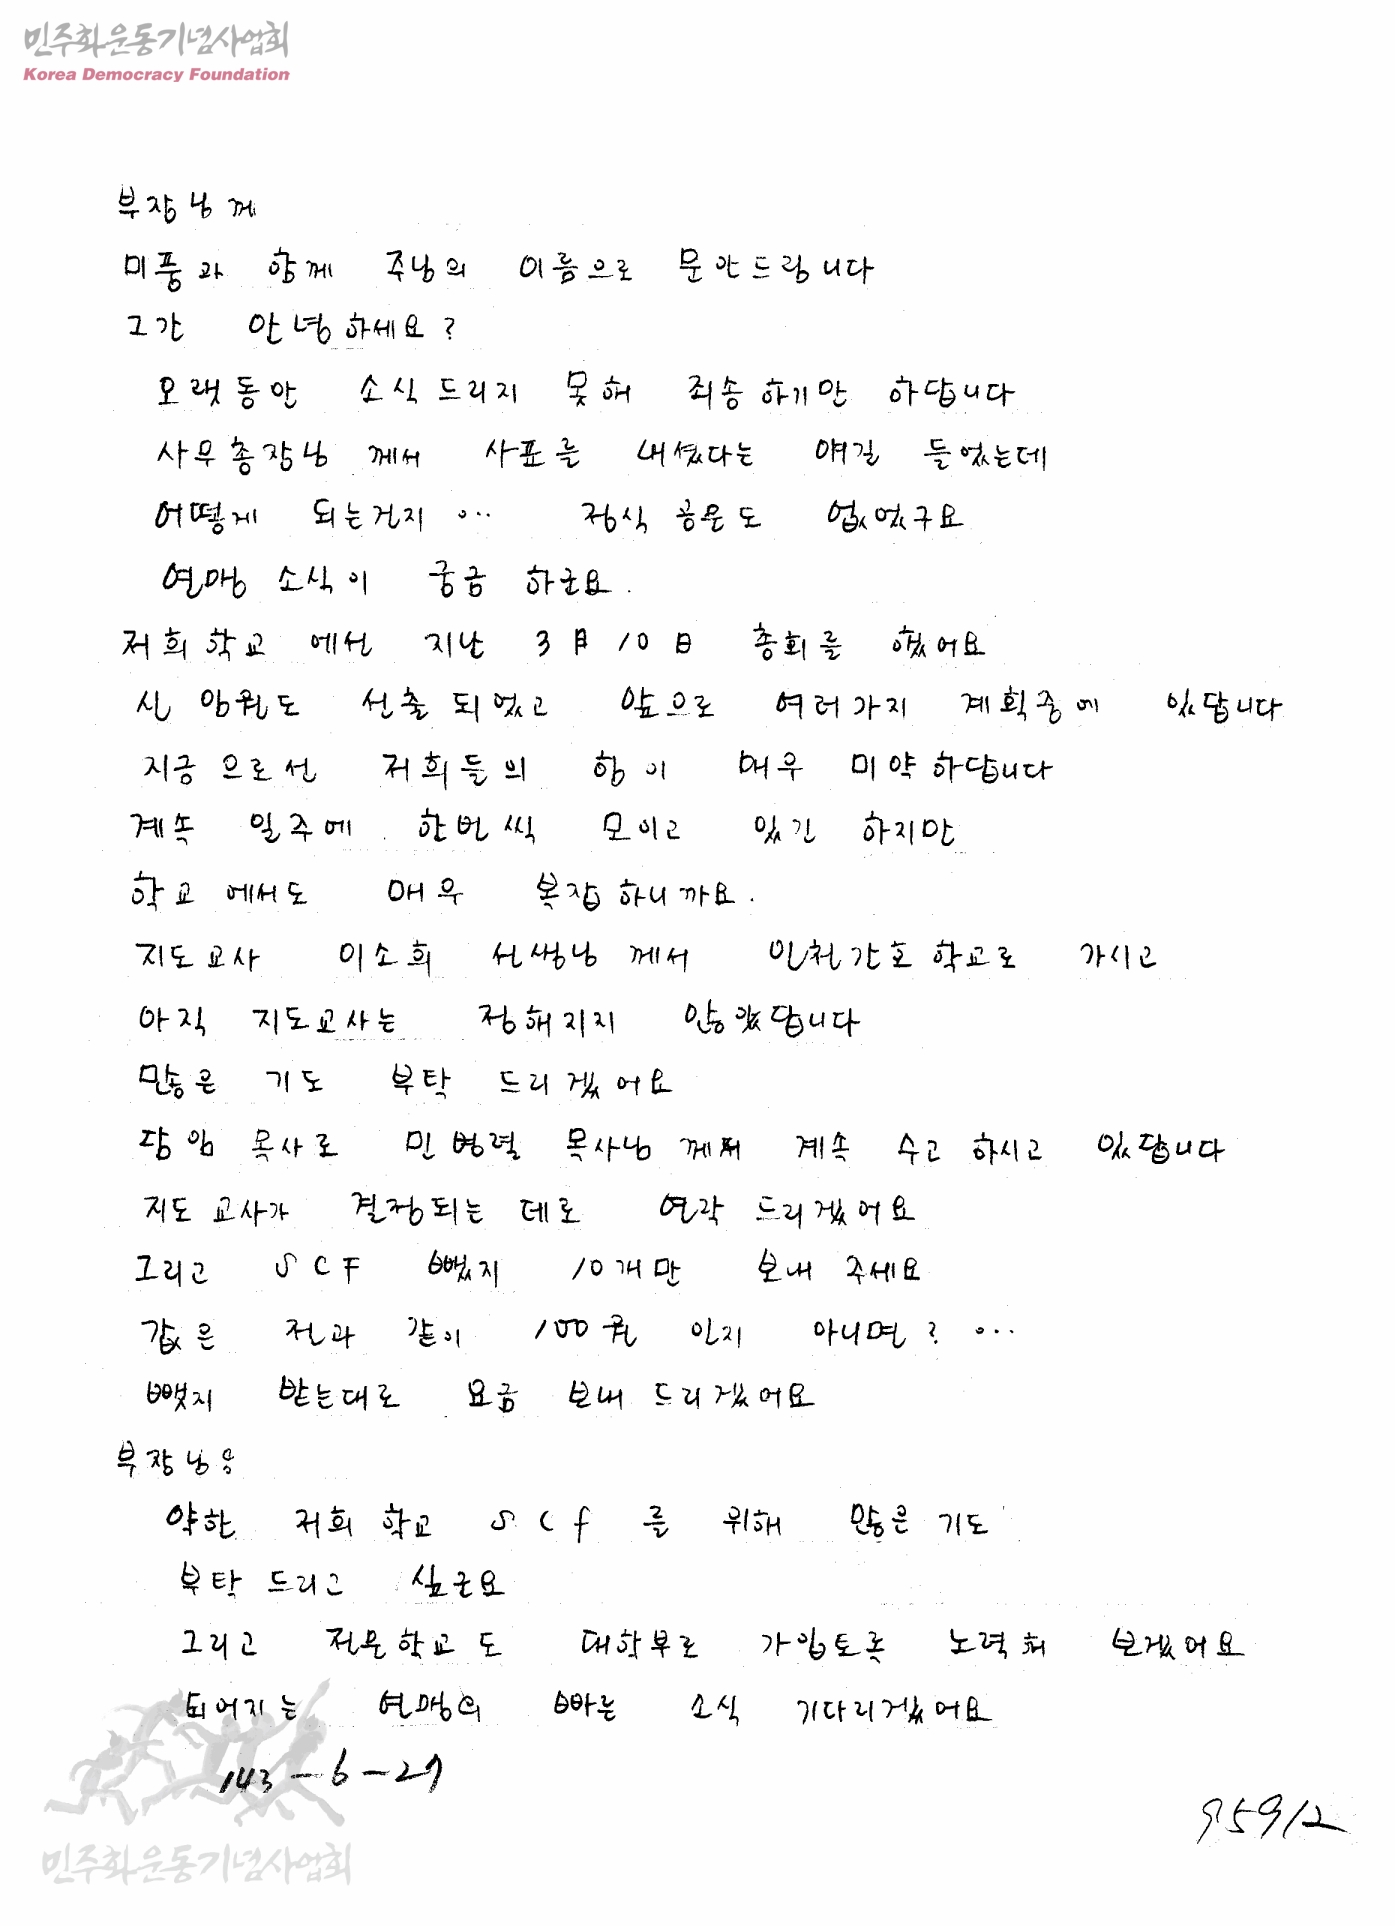 민주화운동기념사업회
Korea Democracy Foundation
부장님께
미풍과 함께 주님의 이름으로 문안드립니다
그간 안녕하세요?
오랫동안 소식드리지 못해 죄송하기만 하답니다
사무총장님 께서 사표를 내셨다는 얘길 들었는데
어떻게 되는건지 ... 정식 공문도 없었구요
연맹 소식이 궁금 하군요.
저희 학교 에선 지난 3月 10日 총회를 했어요
신 임원도 선출 되었고 앞으로 여러가지 계획중에 있답니다
지금 으로선 저희들의 힘이 매우 미약하답니다
계속 일주에 한번씩 모이고 있긴 하지만
학교 에서도 매우 복잡하니까요.
지도 교사 이소희 선생님 께서 인천간호 학교로 가시고
아직 지도교사는 정해지지 않았답니다
많은 기도 부탁 드리겠어요
담임 목사로 민병렬 목사님 께서 계속 수고 하시고 있답니다
지도 교사가 결정되는 데로 연락 드리겠어요
그리고 SCF 뺐지 10개만 보내 주세요
값은 전과 같이 100원 인지 아니면? ...
뺏지 받는대로 요금 보내 드리겠어요
부장님!
약한 저희 학교 SCF 를 위해 많은 기도
부탁 드리고 싶군요
그리고 전문학교도 대학부로 가입토록 노력해 보겠어요
되어지는 연맹의 빠른 소식 기다리겠어요
143-6-27
95912
민주화운동기념사업회